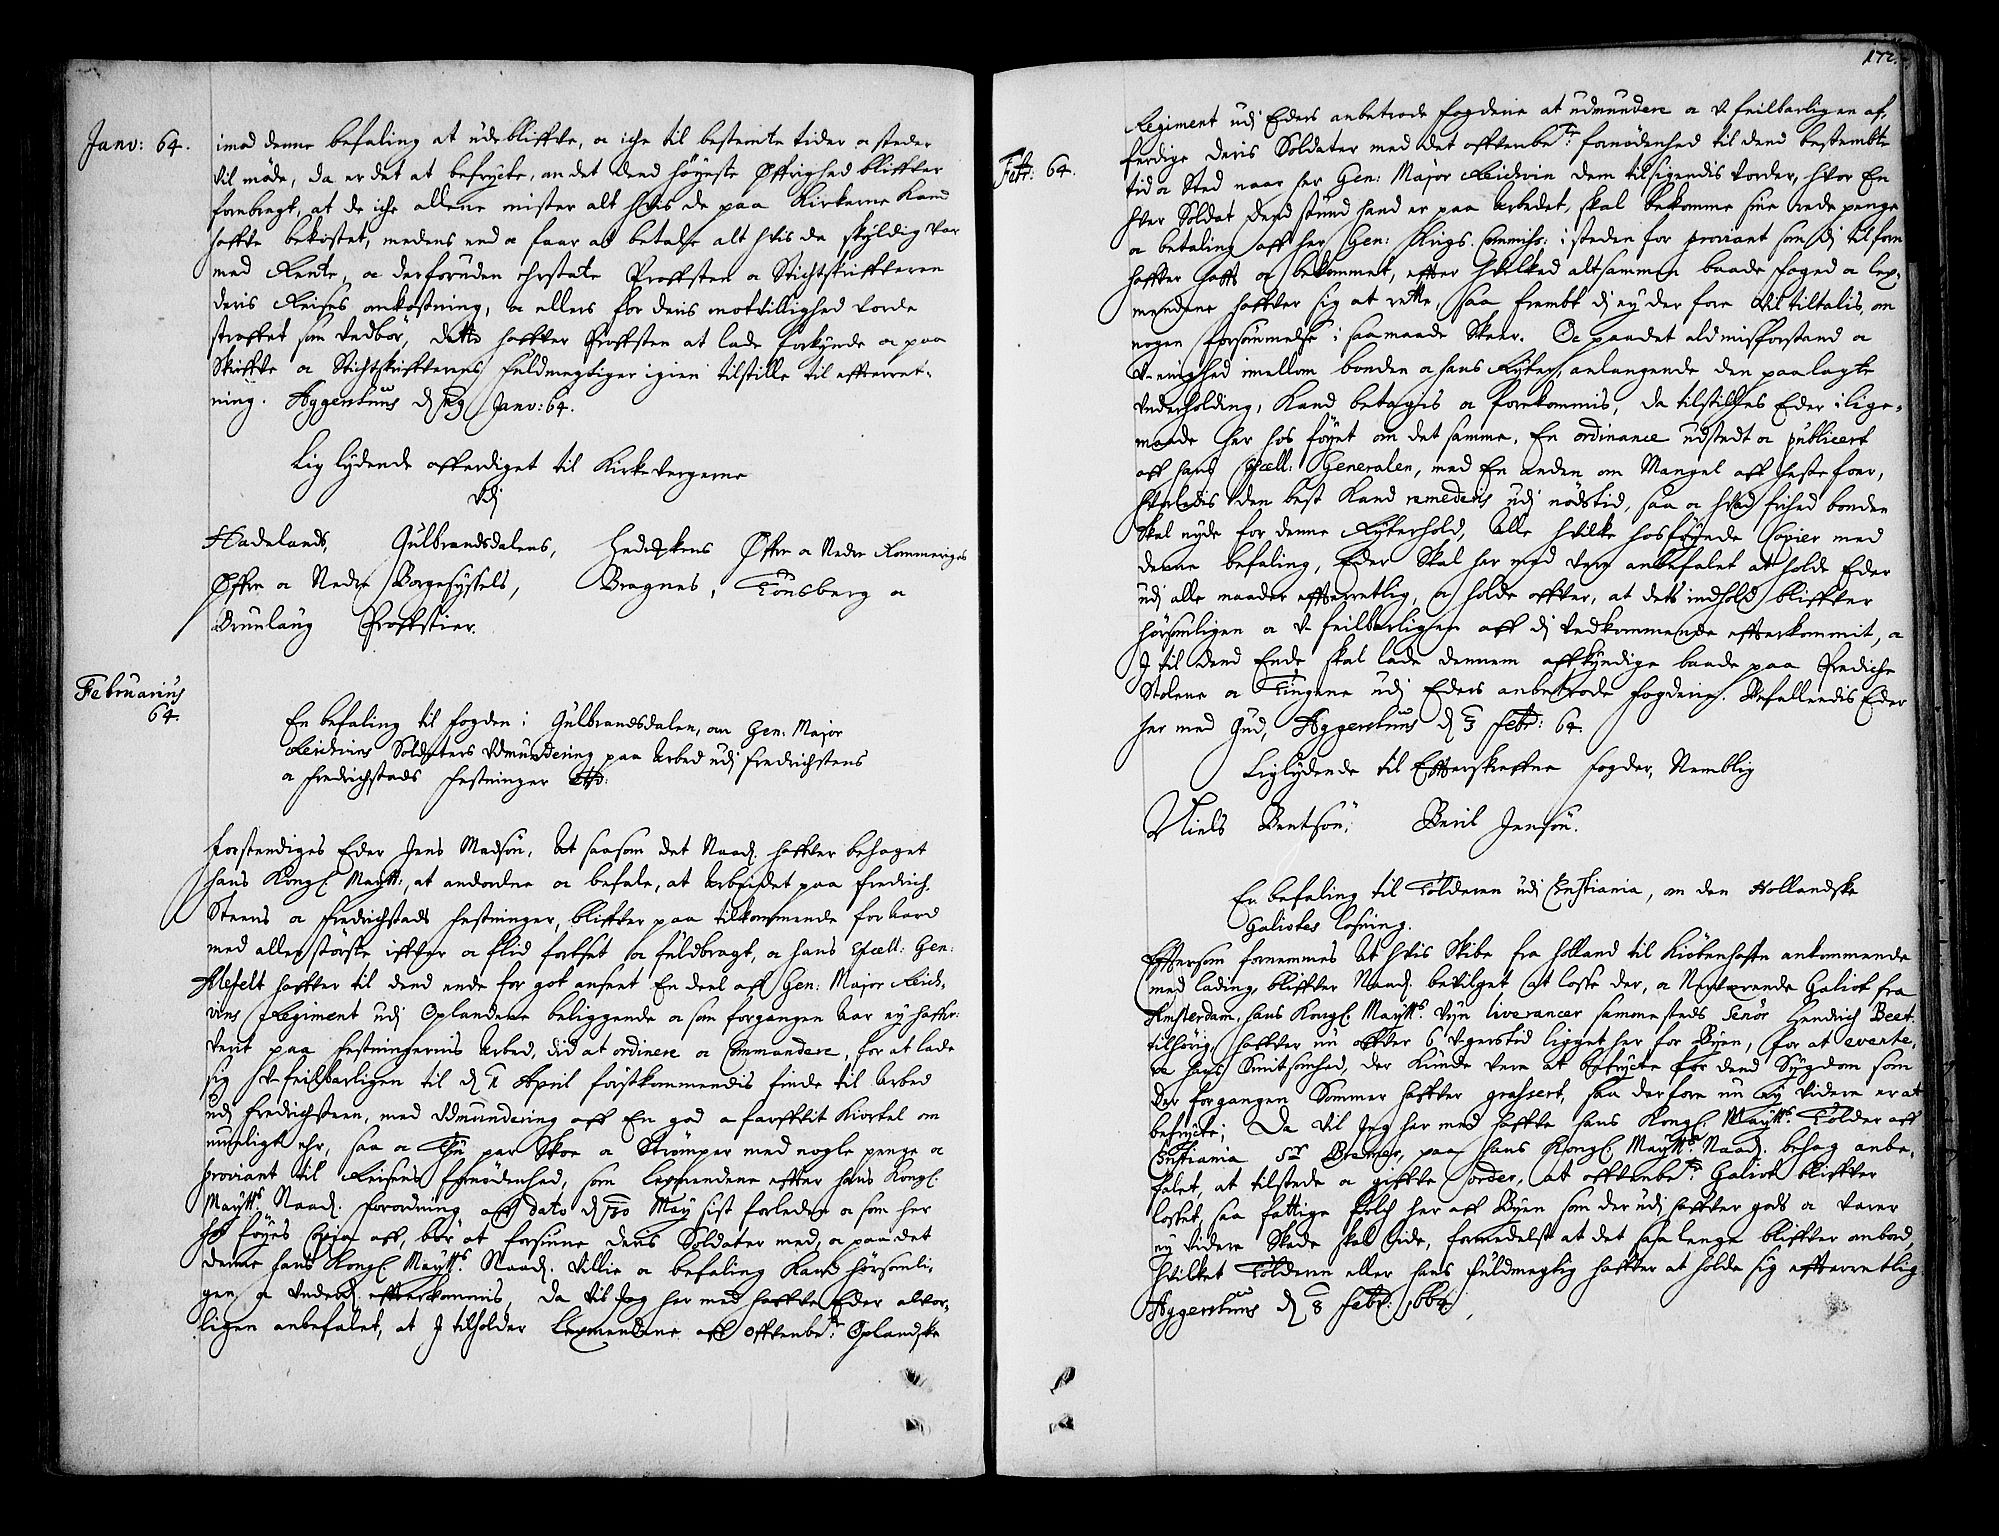 Janv: 64.
imod denne befaling at udebliffve, oc iche til bestemte tider oc steder
vil møde, da er det at befrycte, om det dend høyeste Øffrighed bliffver
forebragt, at de iche allene mister alt hvis de paa Kirkerne Kand
haffve bekostet, medens end oc faar at betale alt hvis de skyldig var
med Rente, oc derforuden erstate Proffsten oc Stichtskriffveren
deris Reises omkostning, oc ellers for deris motvillighed vorde
straffet som vedbør, dette haffver Proffsten at lade forkynde oc paa
Skriffve oc Stichtskriffverens fuldmegtiger igien tilstille til effterret-
ning. Aggershuus d 29 Janv: 64.
Lig lydende afferdiget til Kirkevergerne
udj
Hadelands, Gulbrandsdalens, Hedemarkens Øffre oc Nedre Rommeriges
Øffre oc Nedre Borgesyssels, Bragnes, Tønsberg oc
Brunlaug Proffstier.
Februarius
64.
En befaling til fogden i Gulbrandsdalen, om Gen: Major
Reichvins Soldaters udmundering paa arbed udj Fredrichstens
oc Fredrichstads festninger etc:
Forstendiges Eder Jens Madsøn, At saasom det Naad. haffver behaget
hans Kongl. Maytt:, at anordne oc befale, at arbeidet paa Fredrich-
Steens oc Fredrichstads festninger, bliffver paa tilkommende forAard
med aller største iffver oc flid fortset oc fuldbragt, oc hans Excell: Gen:
Alefelt haffver til dend ende for got anseet En deel aff Gen: Major Reich-
vins Regiment udj Oplandene beliggende oc som forgangen Aar ey haffr:
verit paa festningernis arbed, did at ordinere oc Commandere, for at lade
sig v-feilbarligen til d 1 April førstkommendis finde til arbed
udj Fredrichsteen, med udmundering aff En god oc farffvit Kiortel om
mueligt ehr, saa oc Tho par Skoe oc Strømper med nogle penge oc
proviant til Reisens fornødenhed, som Legmendene effter hans Kongl:
Maytts. Naad. forordning aff dato d 20 May sist forleden oc som her
hos føyes Copia aff, bør at forsiune deris Soldater med, oc paa det
denne hans Kongl. Maytts. Naad. Villie oc befaling Kand hørsomli-
gen oc underd. effterkommis, Da vil Jeg her med haffve Eder alvor-
ligen anbefalet, at I tilholder Legmendene aff offvenbete: Oplandske
172.
Febr: 64.
Regiment udj Eders anbetrode fogderie at udmundere oc v-feilbarligen af-
ferdige deris Soldater med det offvenbete: fornødenhed til dend bestembte
tid oc Sted naar her Gen: Major Reichvin dem tilsigendis vorder, hvor En
hver Soldat dend stund hand er paa arbedet, skal bekomme sine rede penge
oc betaling aff her Gen: Krigs Commiss: i steden for proviant som dj tilforn
haffver hafft oc bekommet, effter hvilked altsammen baade foged oc leg-
mendene haffver sig at rette, saa frembt dj ey der fore vil tiltalis, om
nogen forsømmelse i saamaade Skeer. Oc paa det ald misforstand oc
v-enighed imellom bonden oc hans Ryter, anlangende den paalagte
underholding, Kand betages oc forekommis, da tilstilles Eder ilige-
maade her hos føyet om det samme, En ordinance udstedt oc publicert
aff hans Excell: Generalen, med En anden om Mangel aff hestefoer,
hvorledis den best Kand remederis udj nødstid, saa oc hvad frihed bonden
Skal nyde for denne Ryterhold, Alle hvilke hosføyede Copier med
denne befaling, Eder Skal her med vere anbefalet at holde Eder
udj alle maader effterretlig, oc holde offver, at dets indhold bliffver
hørsomligen oc v-feilbarligen aff dj vedkommende effterkommit, oc
I til dend Ende skal lade dennem affkyndige baade paa Prædiche
Stolene oc Tingene udj Eders anbetrode fogderie. Befallendis Eder
her med Gud, Aggershuus d 3 Febr: 64.
Liglydende til Effterskreffne fogder, Nemblig
Niels Bentsøn, Bent Jensøn.
En befaling til Tolderen udj Christiania, om den Hollandske
Galiotes losning.
Efftersom fornemmes At hvis Skibe fra Holland til Kiøbenhaffn ankommende
med lading, bliffver Naad. bevilget at losse der, oc Nerværende Galiot fra
Amsterdam, hans Kongl. Maytts. vijn liverancer sammesteds Senør Hendrich Beet:
tilhørig, haffver nu offver 6 ugerstid ligget her for Byen, for at evente-
re hans Smitsomhed, der Kunde vere at befrycte for dend Sygdom som
der forgangen Sommer haffver grassert, saa derfore nu ey videre er at
befrycte; Da vil Jeg her med haffve hans Kongl. Maytts. Tolder aff
Christiania Sr Bremer, paa hans Kongl. Maytts. Naad. behag anbe-
falet, at tilstede oc giffve ordre, at offvenbete: Galiot bliffver
losset, saa fattige folch her aff Byen som der udj haffver gods oc varer
ey videre Skade skal lide, formedelst at det saa lenge bliffver ombord,
hvilket Tolderen eller hans fuldmegtig haffver at holde sig effterretlig.
Aggershuus d 8 Febr: 1664.